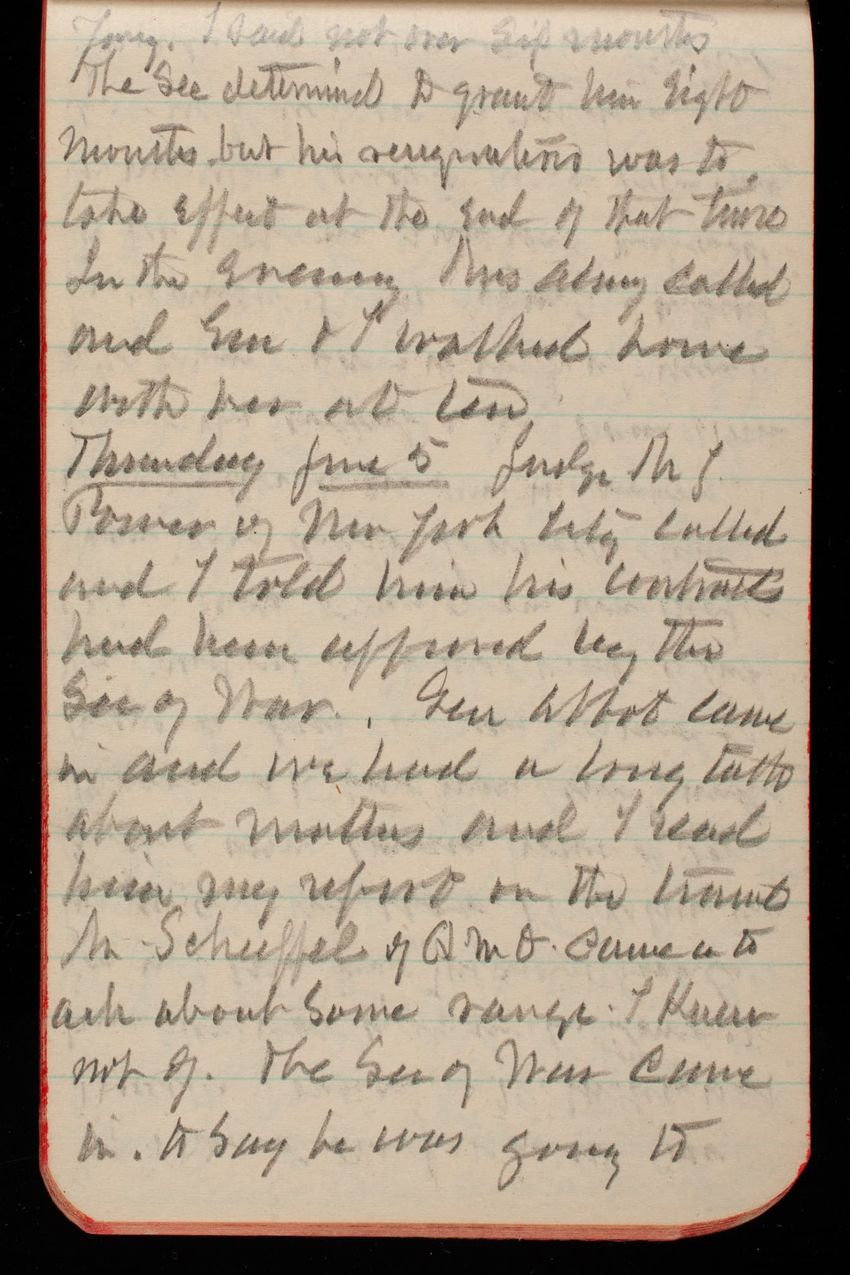 I said not over six months
The Sec determined to grant him eight
months, but his resignation was to
take effect at the end of that time
In the evening Mrs called
and Gen & I walked home
with her at ten
Thursday June 5 Judge M J.
Power of New York City called
and I told him his contract
had been approved by the
Sec of War. Gen Abbot came
in and we had a long talk
about matters and I read
him my report on the
Mr Scheiffel of Q M D. came to
ask about some range. I knew
not of. The Sec of War came
in. to say he was going to